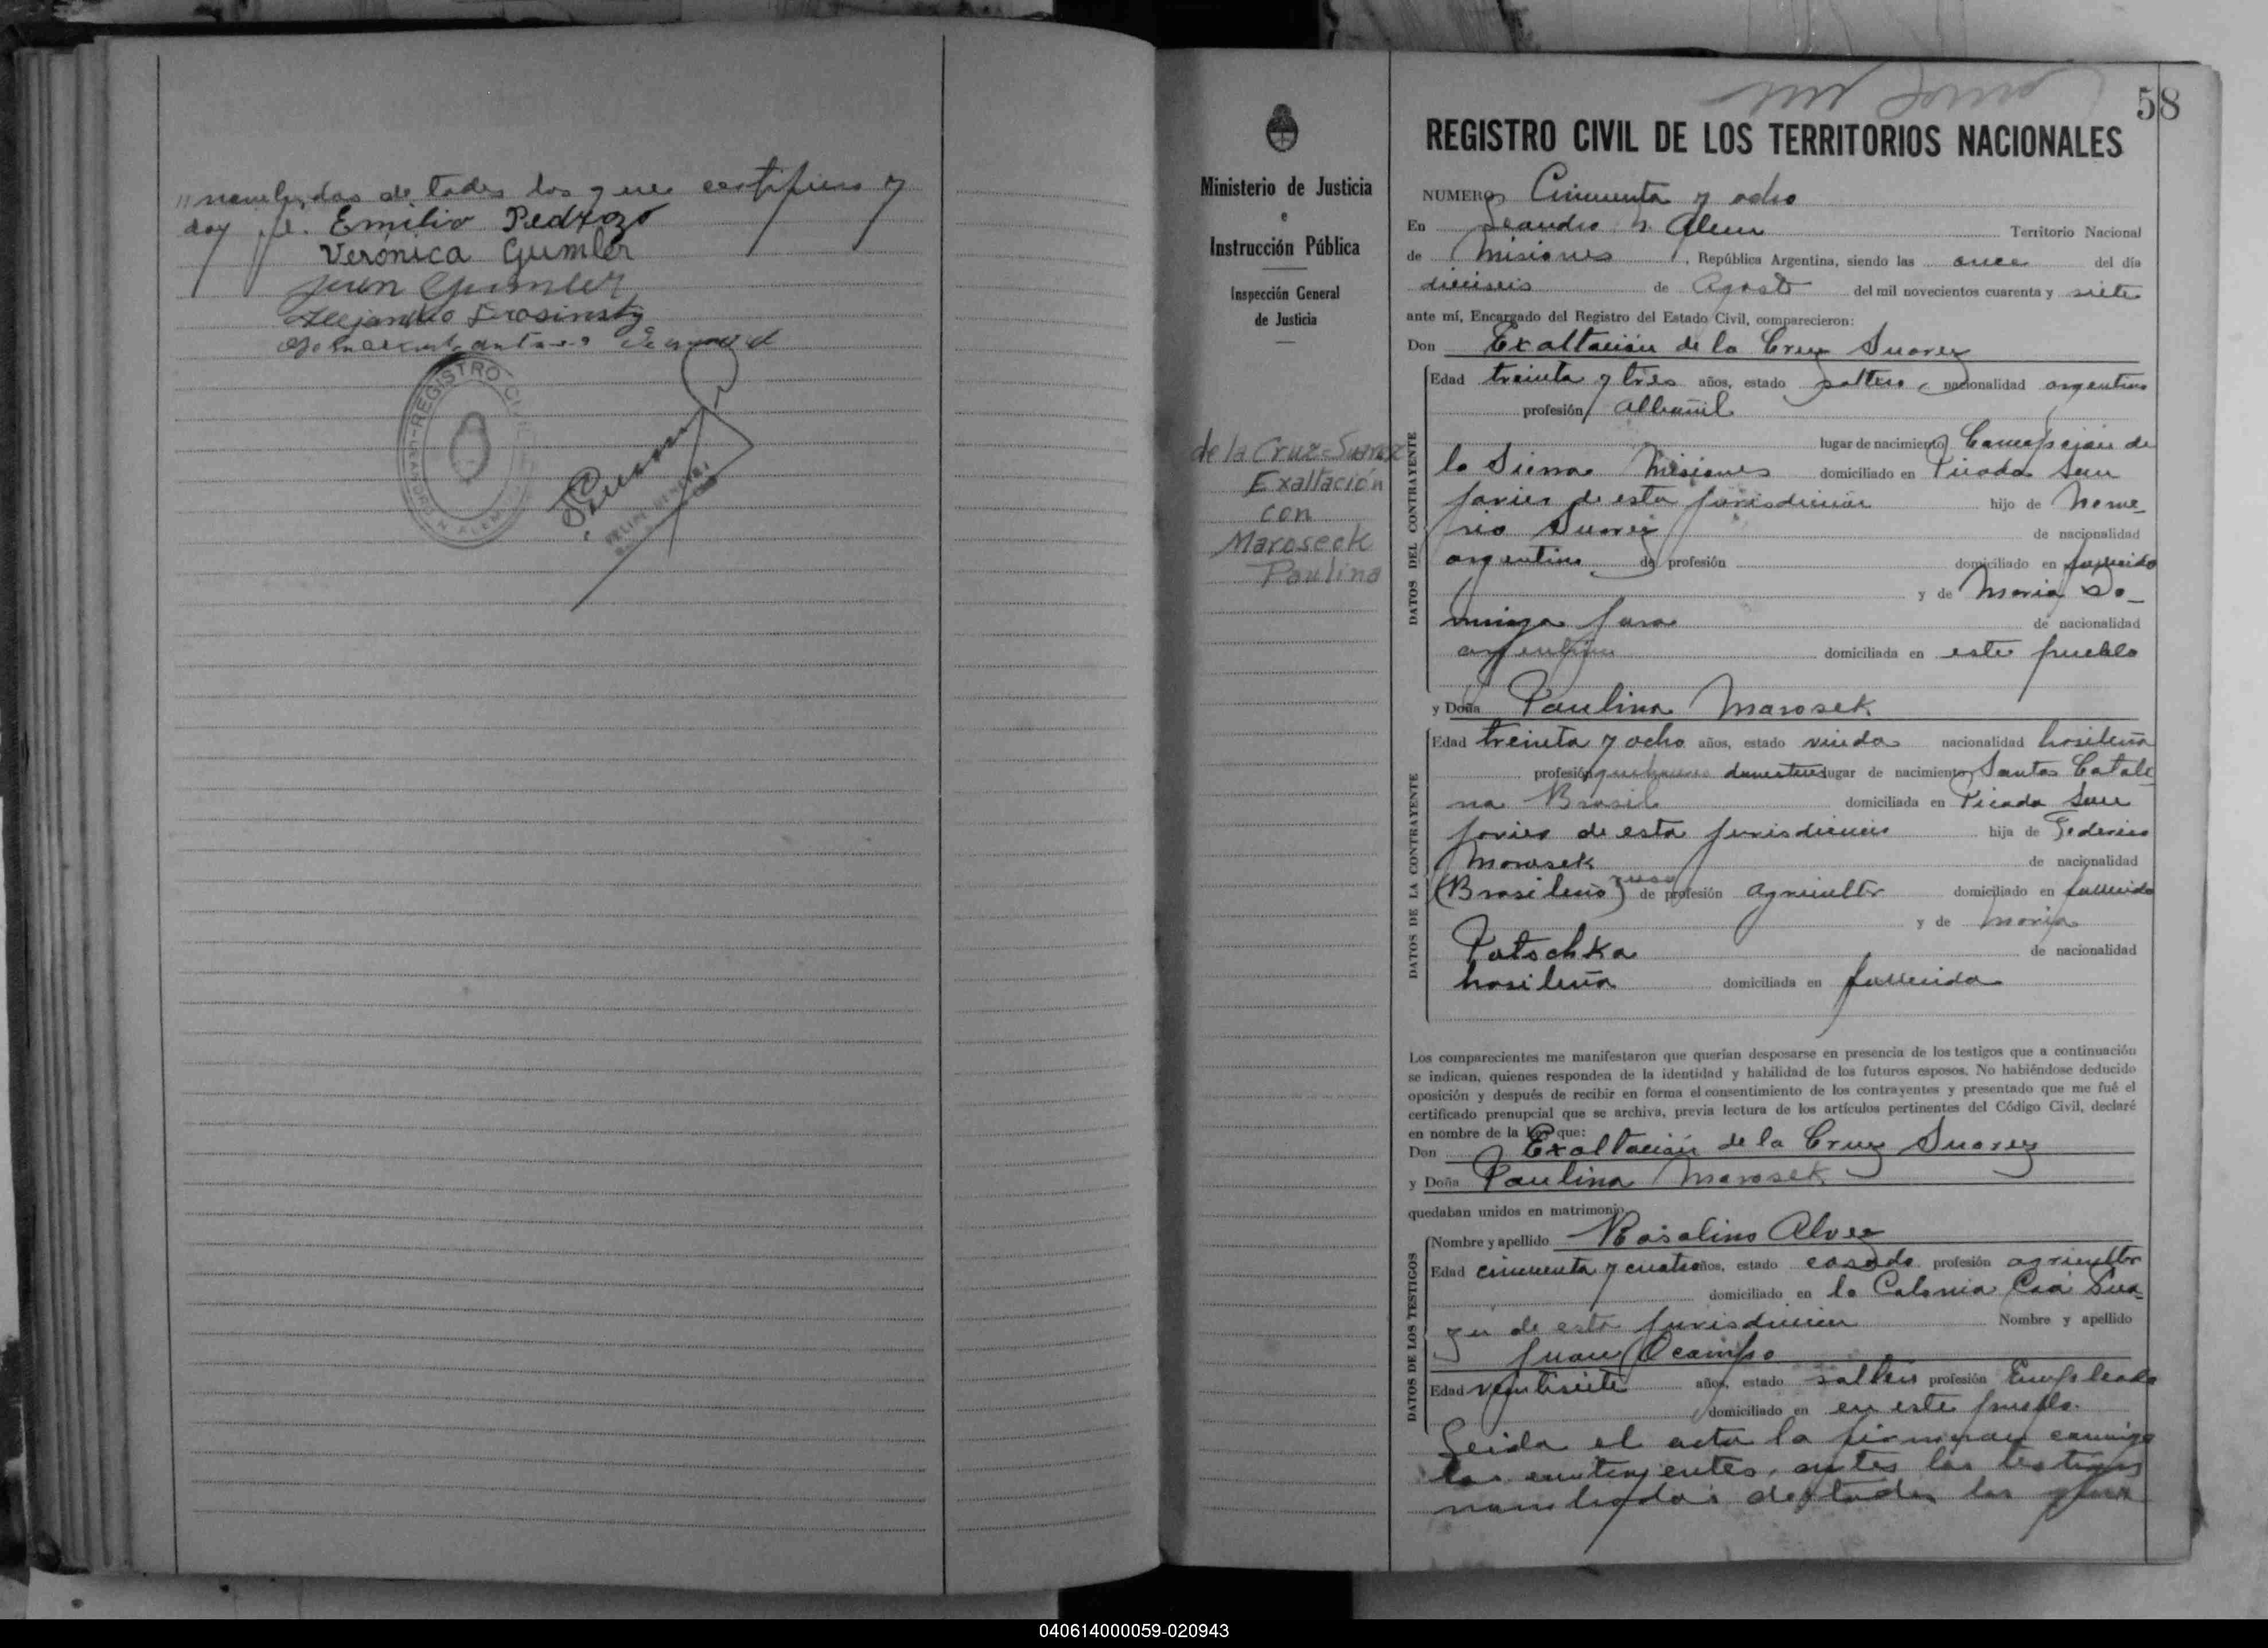 nombrados de todos los que certifico y
doy fé. Emilio Pedrozo
Verónica Gumler
Juan Gumler
Alejandro
REGISTRO CIVIL
LEANDRO N. ALEM
58
REGISTRO CIVIL DE LOS TERRITORIOS NACIONALES
Ministerio de Justicia
e
Instrucción Pública
Inspección General
de Justicia
de la Cruz Suarez
Exaltación
con
Maroseck
Paulina
NUMERO Cincuenta y ocho
En Leandro N. Alem Territorio Nacional
de Misiones, República Argentina, siendo las once del día
dieciseis de Agosto del mil novecientos cuarenta y siete
ante mí, Encargado del Registro del Estado Civil, comparecieron:
Don Exaltación de la Cruz Suarez
DATOS DEL CONTRAYENTE
Edad treinta y tres años, estado soltero, nacionalidad argentino
profesión albañil
lugar de nacimiento Concepción de
la Sierra Misiones domiciliado en Picada San
Javier de esta jurisdicción hijo de
Suarez de nacionalidad
argentino de profesión domiciliado en fallecido
y de Maria Do-
minga Jara de nacionalidad
argentina domiciliada en este pueblo
y Doña Paulina Marosek
DATOS DE LA CONTRAYENTE
Edad treinta y ocho años, estado viuda nacionalidad brasileña
profesión quehaceres domesticos lugar de nacimiento Santa Catali
na Brasil domiciliada en Picada San
Javier de esta jurisdicción hija de Federico
Marosek de nacionalidad
(Brasileño) ruso de profesión agricultor domiciliado en fallecido
y de Maria
Patschka de nacionalidad
brasileña domiciliada en fallecida
Los comparecientes me manifestaron que querían desposarse en presencia de los testigos que a continuación
se indican, quienes responden de la identidad y habilidad de los futuros esposos. No habiéndose deducido
oposición y después de recibir en forma el consentimiento de los contrayentes y presentado que me fué el
certificado prenupcial que se archiva, previa lectura de los artículos pertinentes del Código Civil, declaré
en nombre de la Ley que:
Don Exaltación de la Cruz Suarez
y Doña Paulina Marosek
quedaban unidos en matrimonio.
DATOS DE LOS TESTIGOS
Nombre y apellido Rosalino Alvez
Edad cincuenta y cuatro años, estado casado profesión agricultor
domiciliado en la Colonia Caá
de esta jurisdicción Nombre y apellido
Juan Ocampo
Edad veintisiete años, estado soltero profesión Empleado
domiciliado en en este pueblo.
Leida el acta la firmaron conmigo
los contrayentes, los testigos
nombrados de todos los que
040614000059-020943